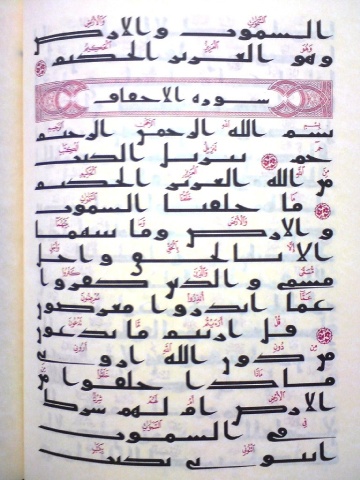 السموت والارض
وهو العزيز الحكيم
سورة الاحقاف
بسم الله الرحمن الرحيم
حم تنزيل الكتب
من الله العزيز الحكيم
ما خلقنا السموت
والارض وما بينهما
الا بالحق واجل
مسمى والذين كفروا
عما انذروا معرضون
قل اريتم ما تدعون
من دون الله اروني
ماذا خلقوا من
الارض ام لهم شرك
في السموت
ايتوني بكتب